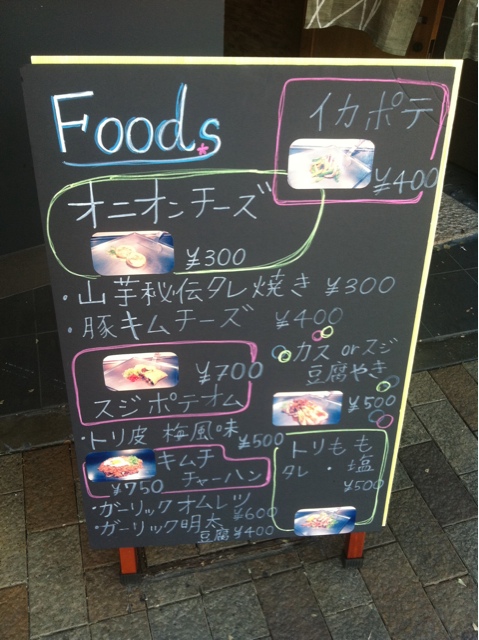 Foods
イカポテ
¥400
オニオンチーズ
¥300
・山芋秘伝タレ焼き ¥300
・豚キムチーズ ¥400
¥700
スジポテオム
カス orスジ
豆腐やき
¥500
・トリ皮 梅風味 ¥500
キムチ
チャーハン
¥750
トリもも
タレ・塩
¥500
・ガーリックオムレツ ¥600
・ガーリック明太
豆腐 ¥400